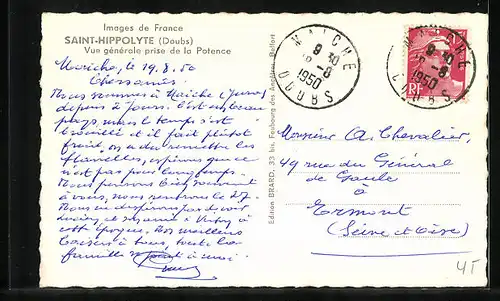 Images de France
SAINT-HIPPOLYTE (Doubs)
Vue générale prise de la Potence
Maîche, le 19.8.50
Chers amis,
Nous sommes à Maîche (Jura)
depuis 2 jours. C'est un beau
pays, mais le temps s'est
brouillé et il fait plutôt
froid, on a du remettre les
flanelles, espérons que ce
n'est pas pour longtemps.
Nous pensons bien souvent
à vous, nous rentrons le 27.
cette époque. Nos meilleurs
baisers à tous, toute la
famille
Edition BRARD, 33 bis, Faubourg des Ancêtres Belfort
MAICHE
9 30
-8
1950
DOUBS
MAICHE
9 30
-8
1950
DOUBS
RF
Monsieur A. Chevalier,
49 rue du Général
de Gaule
à
Ermont
(Seine et Oise)
45